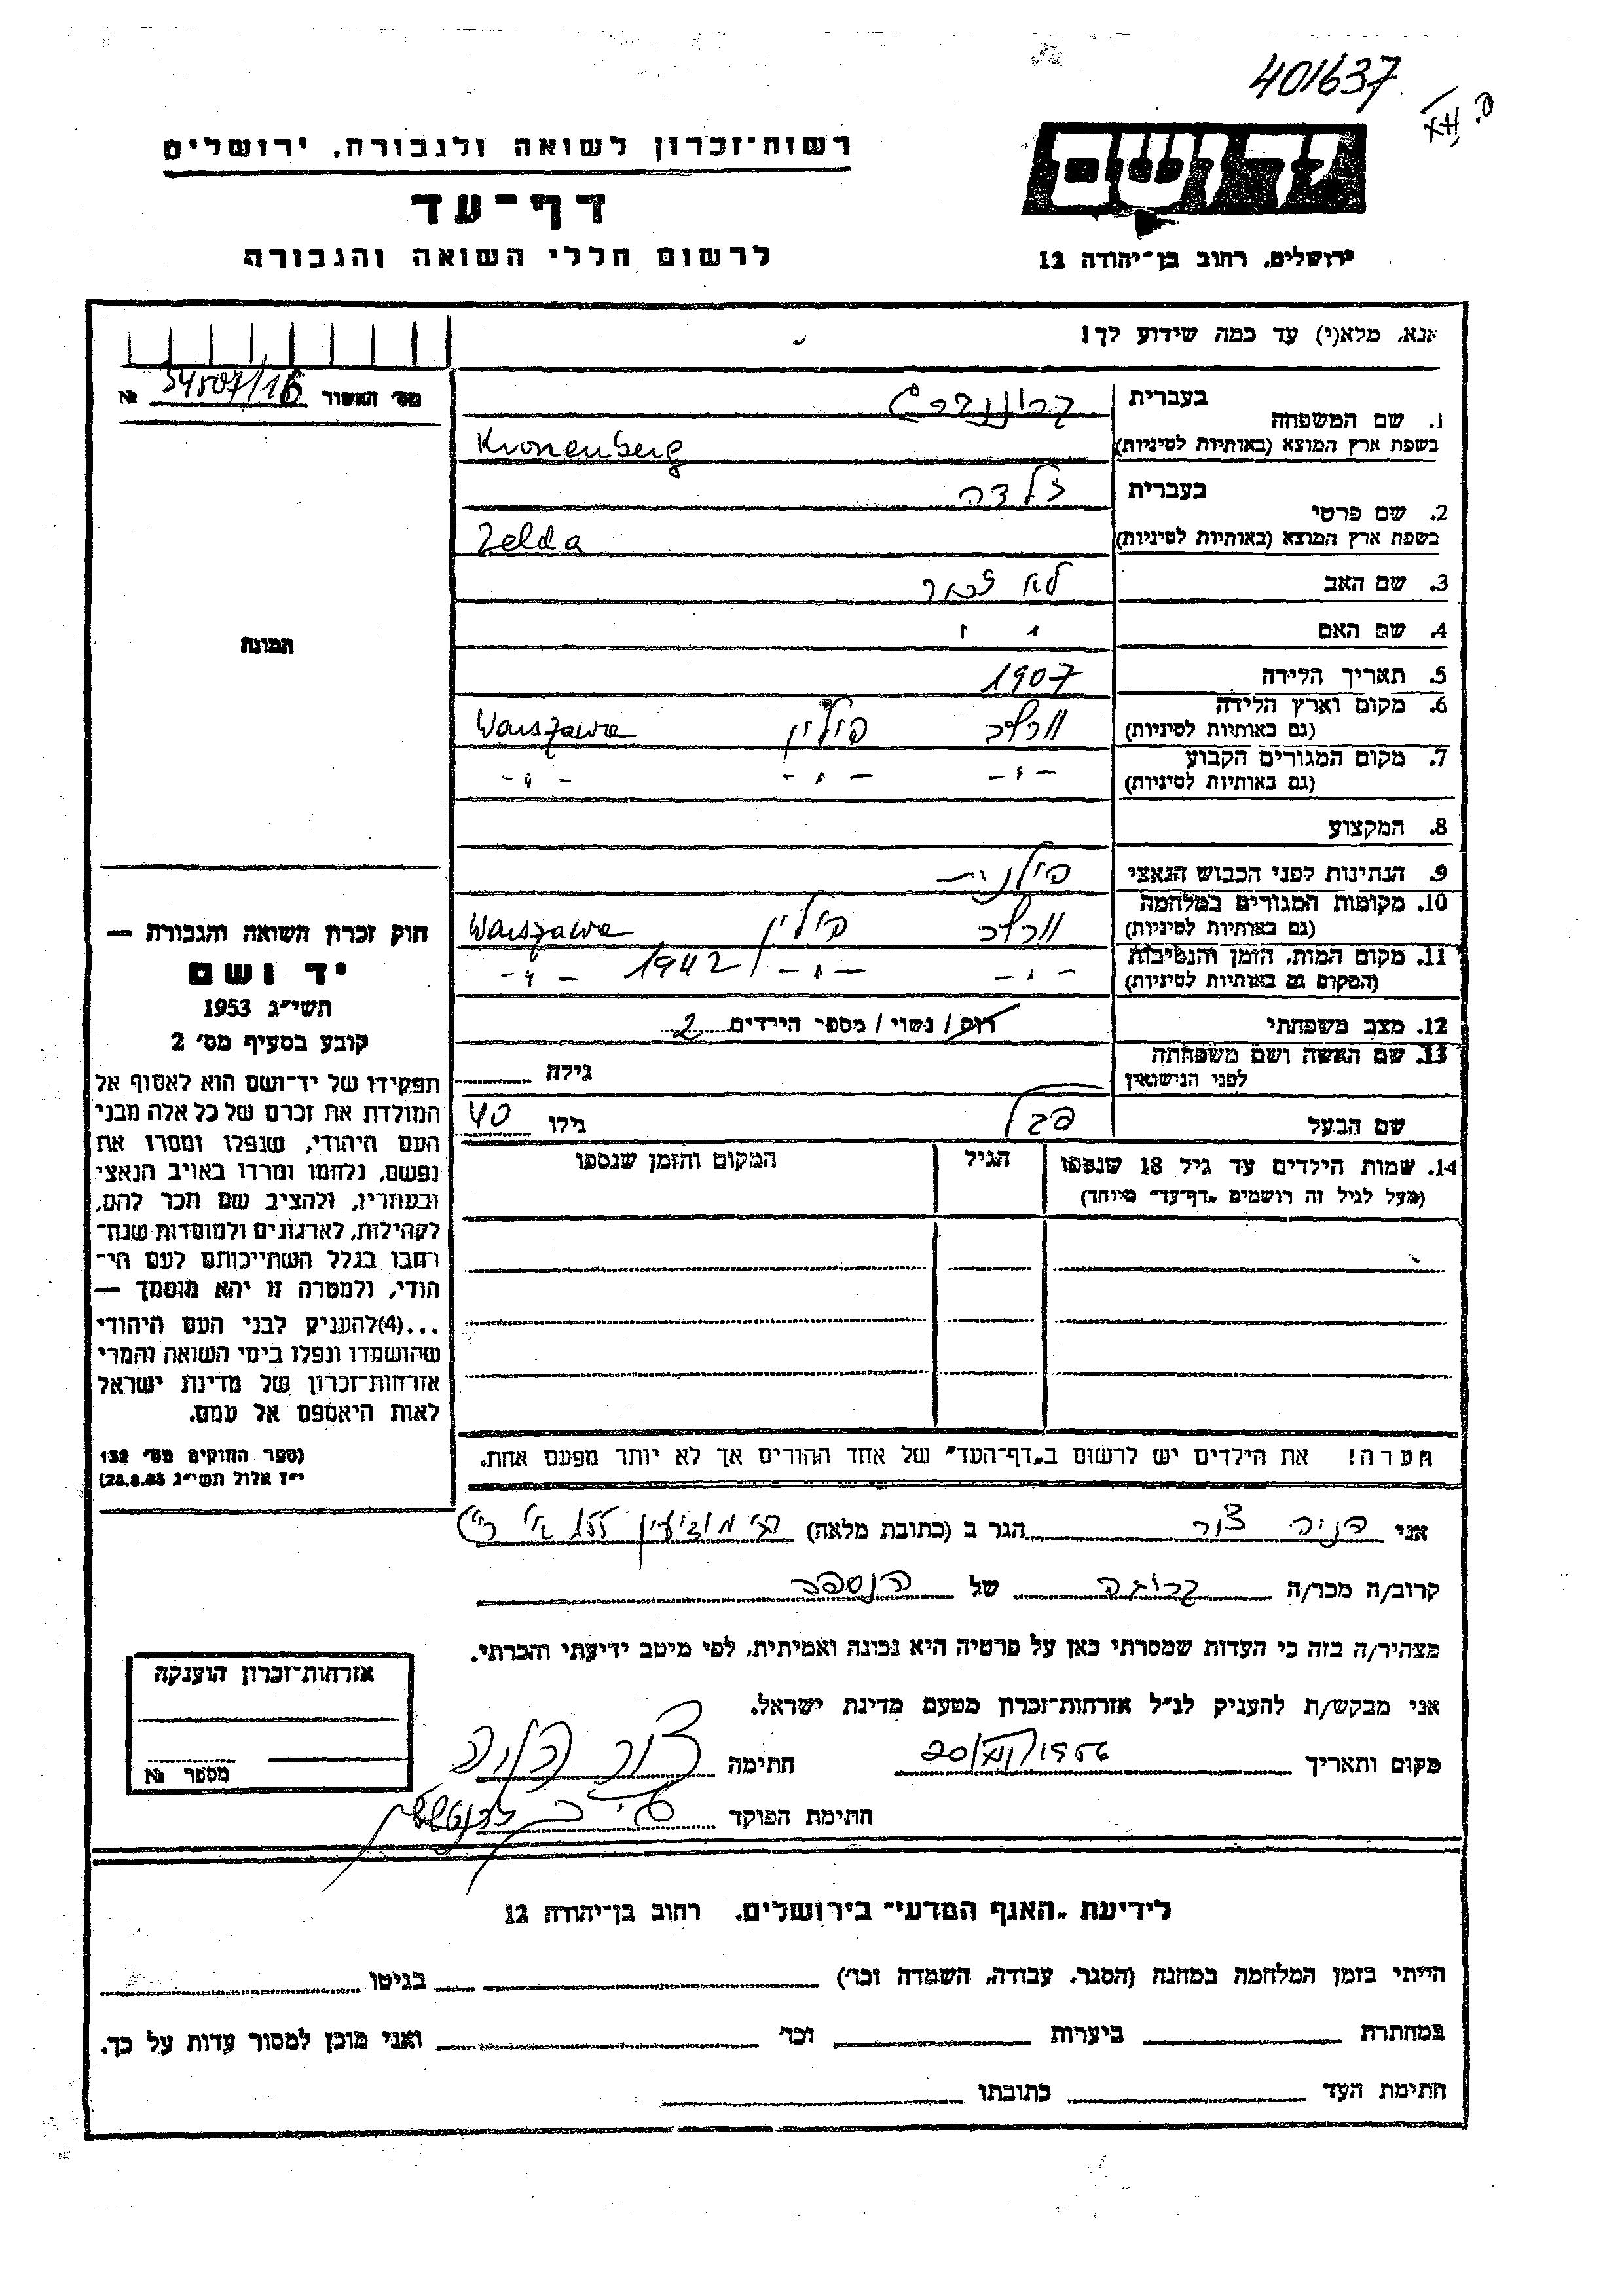 401637
רשות־זכרון לשואה ולגבורה, ירושלים
דף־עד
לרשום חללי השואה והגבורה
יד ושם
ירושלים, רחוב בן־יהודה 12
אנא, מלא(י) עד כמה שידוע לך!
מס׳ האשור 34507/16 №
1. שם המשפחה
בעברית קרוננברג
בשפת ארץ המוצא (באותיות לטיניות) Kronenberg
2. שם פרטי
בעברית זלדה
בשפת ארץ המוצא (באותיות לטיניות) Zelda
3. שם האב לא זכור
4. שם האם " "
5. תאריך הלידה 1907
6. מקום וארץ הלידה
(גם באותיות לטיניות) ורשה פולין Warszawa
7. מקום המגורים הקבוע
(גם באותיות לטיניות) -"- -"- -"-
8. המקצוע
9. הנתינות לפני הכבוש הנאצי פולנית
10. מקומות המגורים במלחמה
(גם באותיות לטיניות) ורשה פולין Warszawa
11. מקום המות, הזמן והנסיבות
(המקום גם באותיות לטיניות) -"- -"- 1942 -"-
12. מצב משפחתי רוק / נשוי / מספר הילדים 2
13. שם האשה ושם משפחתה
לפני הנישואין גילה
שם הבעל גילו 40
14. שמות הילדים עד גיל 18 שנספו הגיל המקום והזמן שנספו
(מעל לגיל זה רושמים „דף־עד” מיוחד)
הערה! את הילדים יש לרשום ב„דף־העד” של אחד ההורים אך לא יותר מפעם אחת.
תמונה
חוק זכרון השואה והגבורה —
יד ושם
תשי״ג 1953
קובע בסעיף מס׳ 2
תפקידו של יד־ושם הוא לאסוף אל
המולדת את זכרם של כל אלה מבני
העם היהודי, שנפלו ומסרו את
נפשם, נלחמו ומרדו באויב הנאצי
ובעוזריו, ולהציב שם וזכר להם,
לקהילות, לארגונים ולמוסדות שנח־
רבו בגלל השתייכותם לעם הי־
הודי, ולמטרה זו יהא מוסמך —
...(4)להעניק לבני העם היהודי
שהושמדו ונפלו בימי השואה והמרי
אזרחות־זכרון של מדינת ישראל
לאות היאספם אל עמם.
(ספר החוקים מס׳ 132
י״ז אלול תשי״ג 28.8.53)
אני צור הגר ב (כתובת מלאה)
קרוב/ה מכר/ה קרובה של הנספה
מצהיר/ה בזה כי העדות שמסרתי כאן על פרטיה היא נכונה ואמיתית, לפי מיטב ידיעתי והכרתי.
אני מבקש/ת להעניק לנ״ל אזרחות־זכרון מטעם מדינת ישראל.
מקום ותאריך חתימה צור
חתימת הפוקד
אזרחות־זכרון הוענקה
מספר №
לידיעת „האגף המדעי” בירושלים, רחוב בן־יהודה 12
הייתי בזמן המלחמה במחנה (הסגר, עבודה, השמדה וכו׳) בגיטו
במחתרת ביערות וכו׳ ואני מוכן למסור עדות על כך.
חתימת העד כתובתו